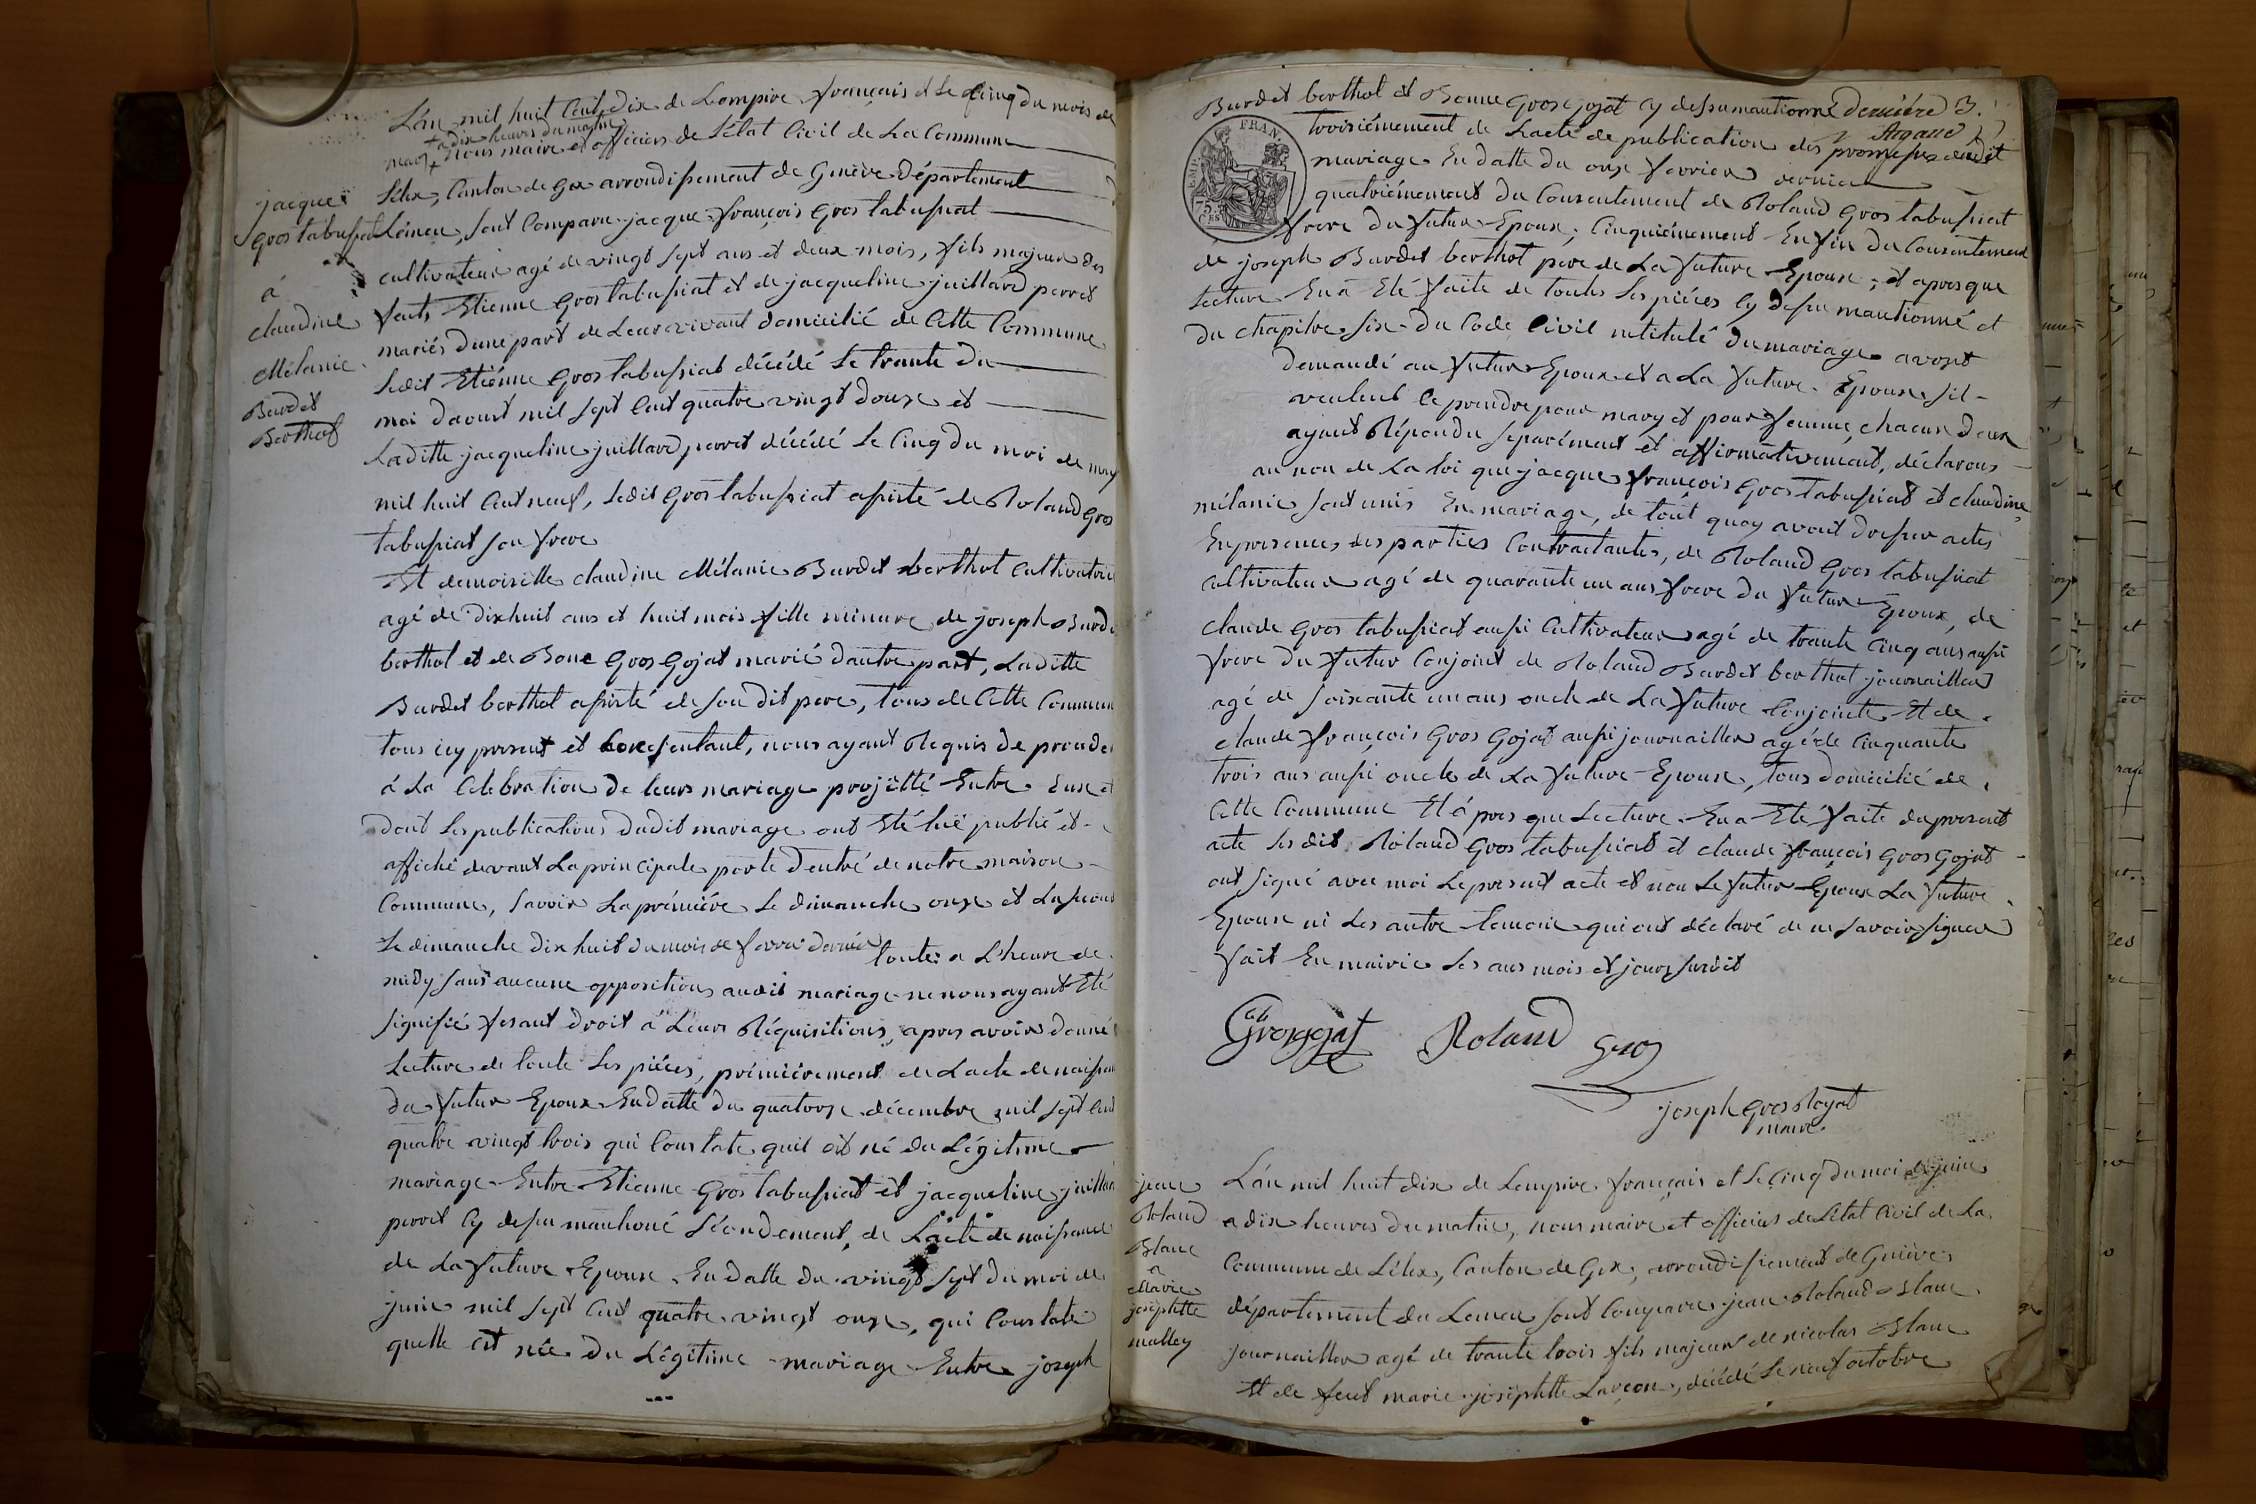 L'an mil huit Cent dix de Lempire français et le Cinq du mois de
mars + a dix heures du matin + nous maire et officier de l'état Civil de La Commune
Lélex, Canton de Gex arrondissement de Genève Département
Léman, sont Comparu jacque françois Gros tabussiat
cultivateur agé de vingt sept ans et deux mois, fils majeur des
feuts Etienne Gros tabussiat et de jacqueline juillard perret
mariés d'une part de Leur vivant domicilié de Cette Commune
Ledit Etiénne Gros tabussiat décédé Le trante du
moi daoust mil sept Cent quatre vingt douze et
Laditte jacqueline juillard perret décédé Le Cinq du moi de may
mil huit Cent neuf, Ledit Gros tabussiat assisté de Roland Gros
tabussiat son frere
Et demoiselle claudine Mélanie Burdet berthot Cultivatrice
agé de dixhuit ans et huit mois fille minure de joseph Burdet
berthot et de Bone Gros Gojat marié dautre part, Laditte
Burdet berthot assisté de son dit pere, tous de Cette Commun
tous icy present et Consentant, nous ayant Requis de proceder
á La Célébration de leurs mariage projètté Entre Eux et
dont Les publications dudit mariage ont Eté lüe publié et
affiché devant La principale porte d'entré de notre maison
Commune, Savoir La prémiére Le dimanche onze et La second
Le dimanche dix huit du mois de fevrier dernier toute a L'heure de
midy sans aucune opposition audit mariage ne nous ayant Eté
signifié fesant droit á Leurs Réquisitions, apres avoir donné
Lecture de toute Les piéces, prémiérement de Lacte de naissan
du futur Epoux En datte du quatorze décembre mil sept Cent
quatre vingt trois qui Constate quil est né du Légitime
mariage Entre Etienne Gros tabussiat et jacqueline juillard
perret Cy dessu mantioné Sécondement, de L'acte de naissance
de La future Epouse En datte du vingt sept du moi de
juin mil sept Cent quatre vingt onze, qui Constate
quelle est née du Légitime mariage Entre joseph
jacque
Gros tabussiat
á
claudine
Mélanie
Burdet
Berthot
Burdet berthot et Bonne Gros Gojat Cy dessu mantionné derniére 3.
EMP. FRAN.
troisiémement de Lacte de publication des promesses dudit
mariage En datte du onze fevrier dernier
quatriémement du Consentement de Roland Gros tabussiat
frere du futur Epoux, Cinquiémement Enfin du Consentement
de joseph Burdet berthot pere de La future Epouse; et apres que
Lecture En a Eté faite de toutes Les piéces Cy dessu mantionné et
du chapitre six du Code Civil intitulé du mariage avont
demandé au futur Epoux et a La future Epouse Sil
veulent Ce prendre pour mary et pour femme, chacun deux
ayant Répondu séparément et affirmativement, déclarons
au nom de La loi que jacque françois Gros tabussiat et claudine
mélanie sont unis En mariage, de tout quoy avont dresser actes
En presences des parties Contractantes, de Roland Gros tabussiat
Cultivateur agé de quarante un ans frere du futur Epoux, de
claude Gros tabussiat aussi Cultivateur agé de trante Cinq ans aussi
frere du futur Conjoint de Roland Burdet berthot journaillier
agé de soixante un ans oncle de La future Conjointe Et de
claude françois Gros Gojat aussi journaillier agé de Cinquante
trois ans aussi oncle de La future Epouse, tous domicilié de
Cette Commune Et á pres que Lecture En a Eté faite du present
acte Les dit Roland Gros tabussiat et claude françois Gros Gojat
ont signé avec moi Le present acte et non Le futur Epoux La future
Epouse ni Les autre temoin qui ont déclaré de ne Savoir signer
fait En mairie Les ans mois et jours susdit
Grosgojat Roland Gros
joseph Gros Royat
maire
jean
Roland
Blanc
a
Marie
joséphtte
malley
L'an mil huit dix de Lempire français et le Cinq du moi de juin
a dix heures du matin, nous maire et officier de L'état Civil de La
Commune de Lélex, Canton de Gex, arrondissement de Genève
département du Leman sont Comparu jean Roland Blanc
journaillier agé de trante trois fils majeur de nicolas Blanc
Et de feut marie joséphtte Lançon, décédé Le neuf octobre